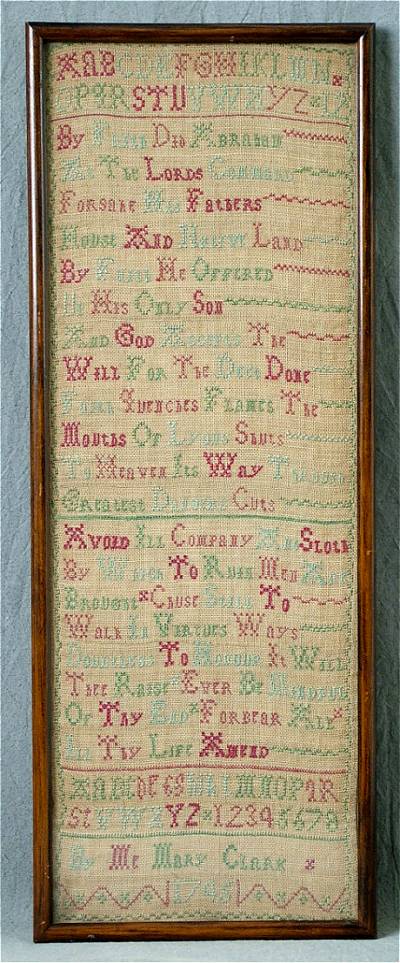 AABCDEFGHIKLMN
OPQRSTUVWXYZ
By Faith Did Abraham
At The Lords Command
Forsake His Fathers
House And Native Land
By Faith He Offered
Up His Only Son
And God Accepts The
Will For The Deed Done
Faith Quenches Flames The
Mouths Of Lyons Shuts
To Heaven Its Way Through
Greatest Dangers Cuts
Avoid Ill Company And Sloth
By Which To Ruin Men Are
Brought Chuse Still To
Walk In Virtues Ways
Doubtless To Honour It Will
Thee Raise Ever Be Mindful
Of Thy End Forbear All
Ill Thy Life Amend
YZ 12345678
By Me Mary Clark
1745